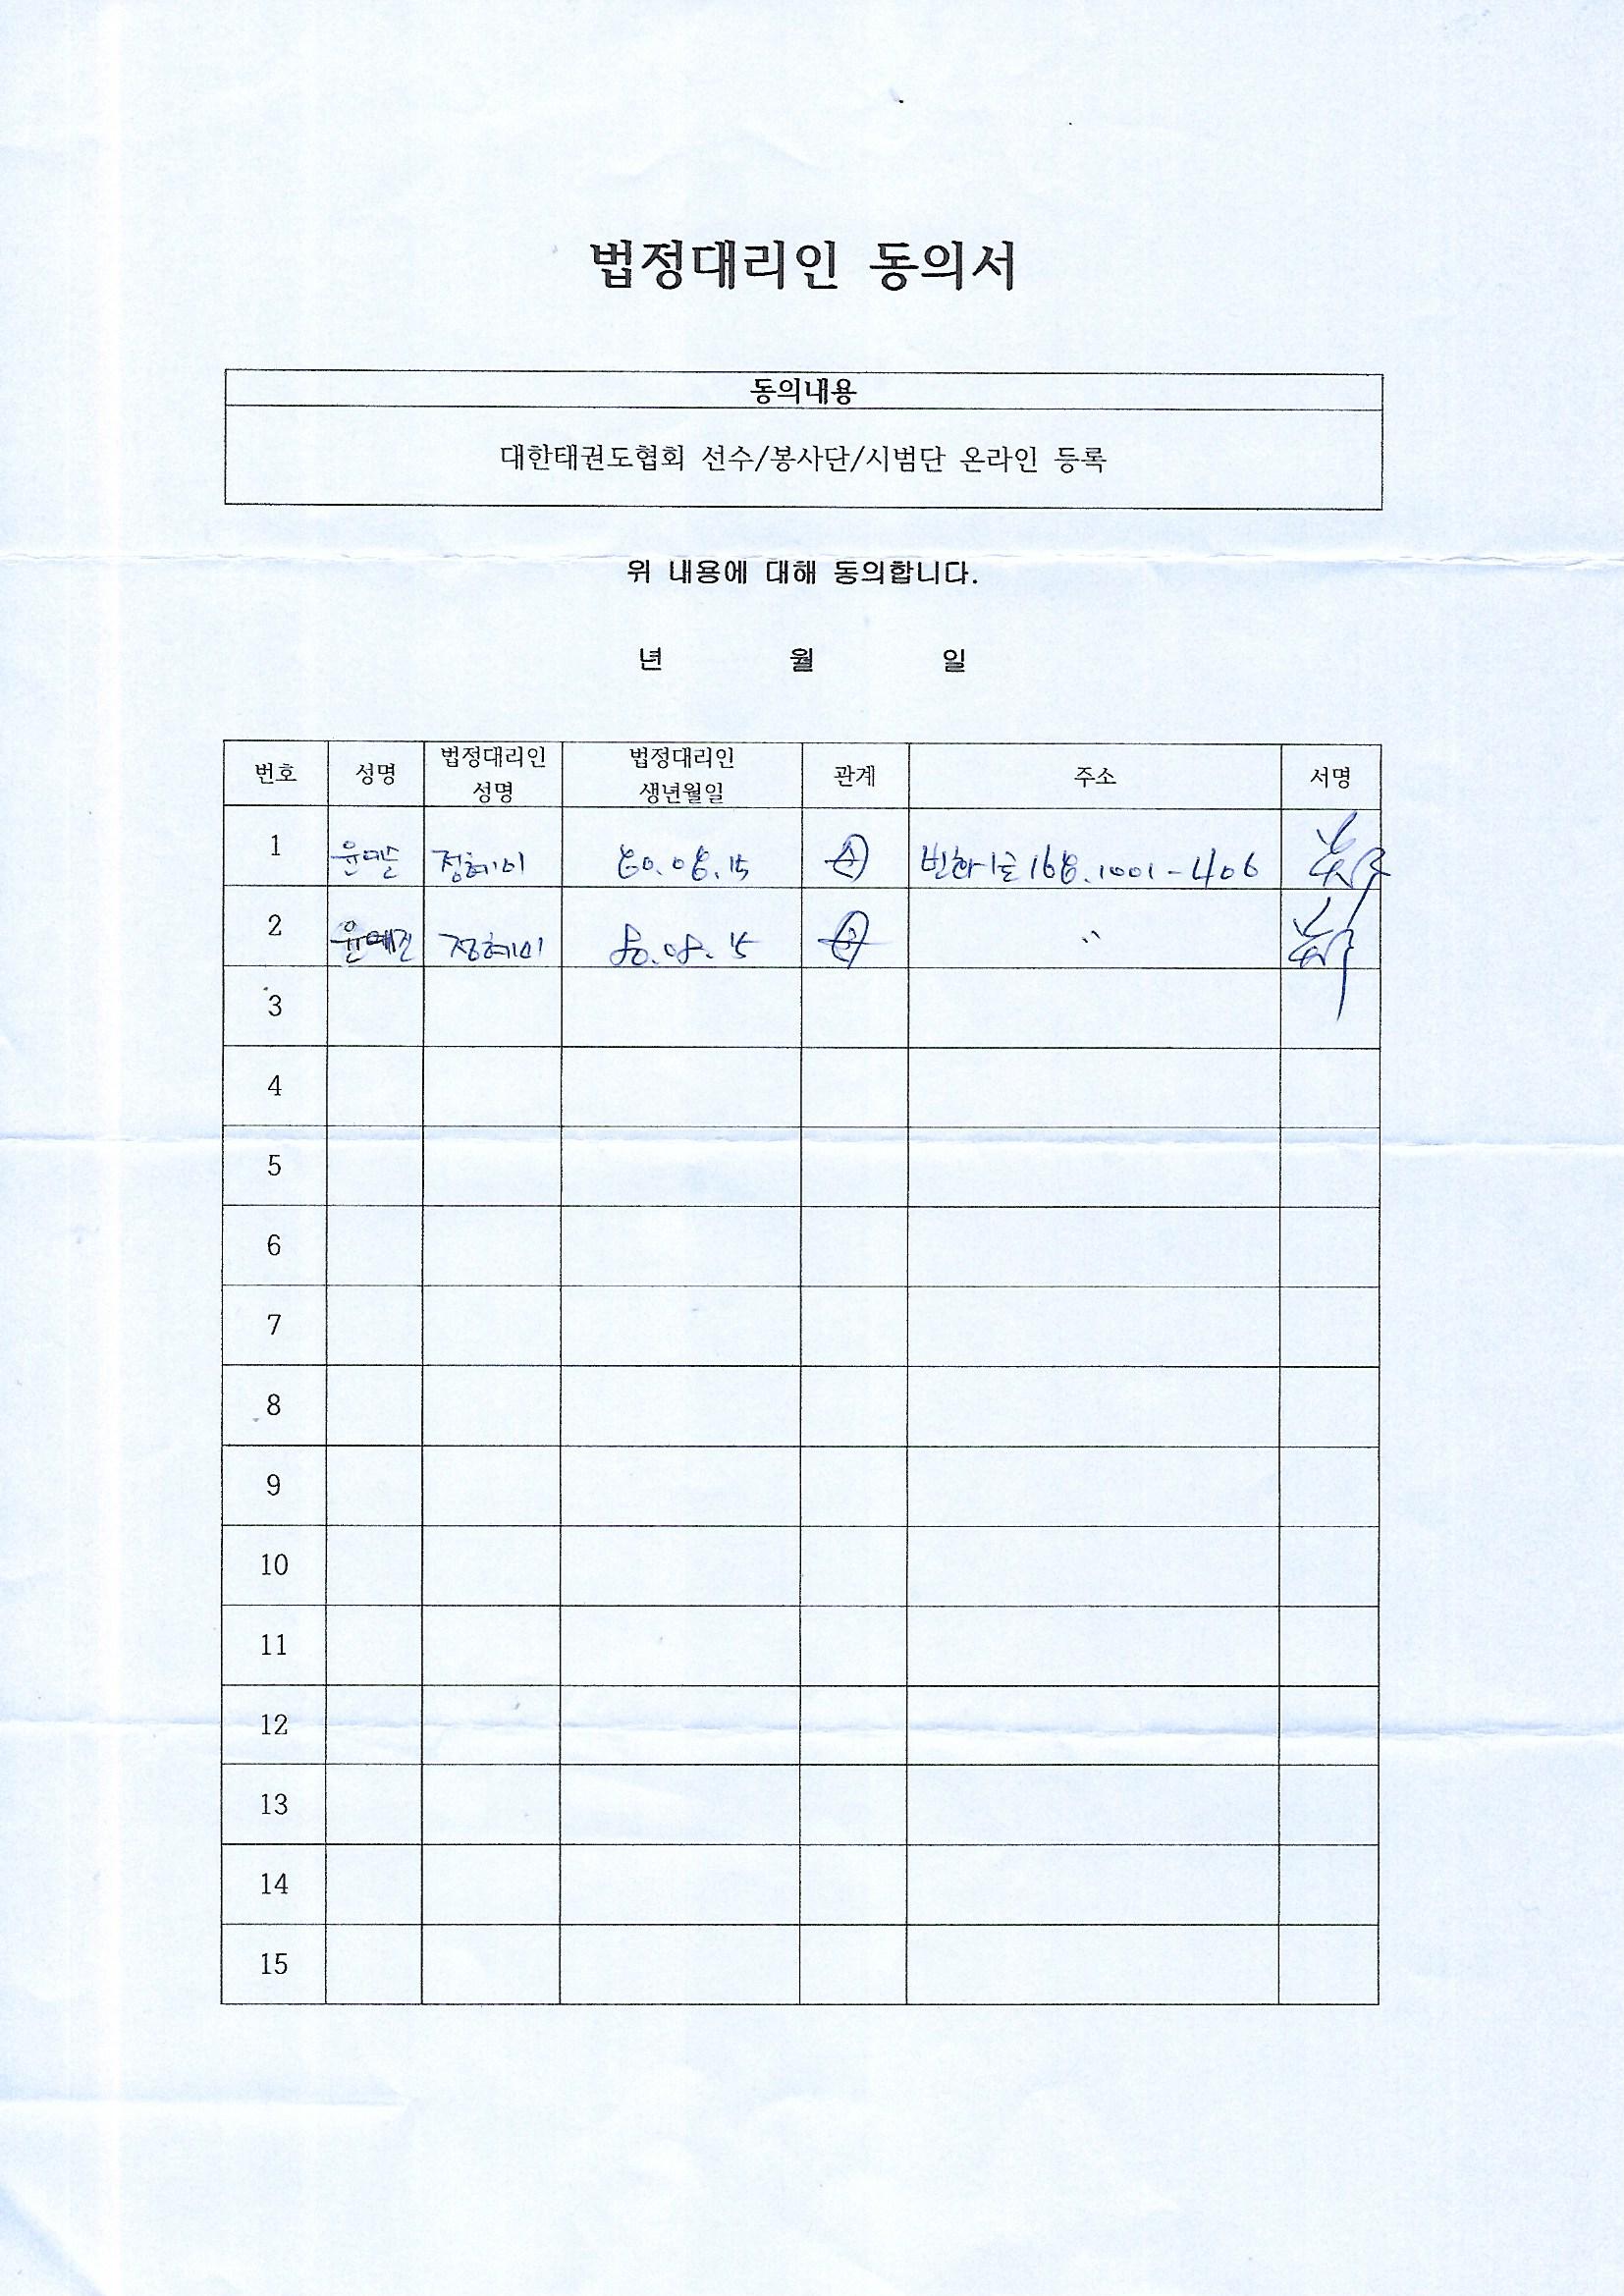 법정대리인 동의서
동의내용
대한태권도협회 선수/봉사단/시범단 온라인 등록
위 내용에 대해 동의합니다.
년 월 일
번호 성명 법정대리인 성명 법정대리인 생년월일 관계 주소 서명
1 정혜미 80.08.15 번화1로 168. 1001-406
2 윤예진 정혜미 80.08.15 〃
3
4
5
6
7
8
9
10
11
12
13
14
15